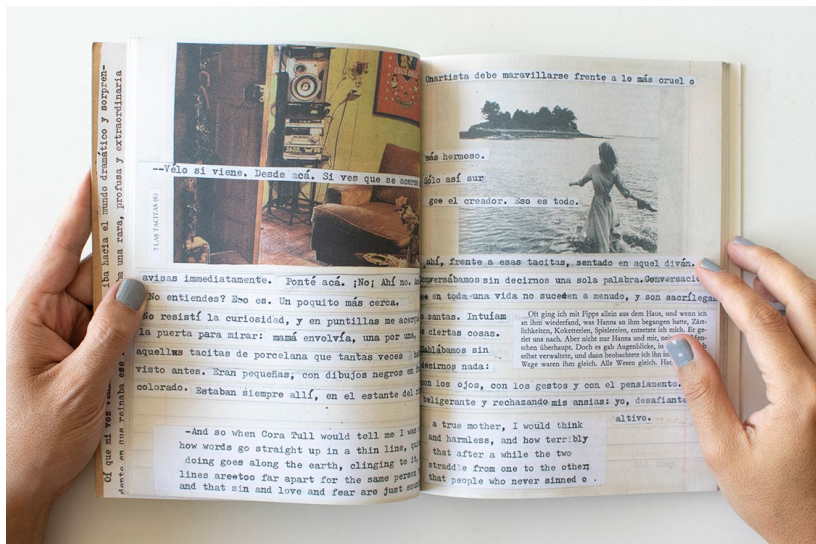 iba hacia el mundo dramático y sorpren-
una rara, profusa y extraordinaria
Oí que mi voz
dente en que reinaba ese
--Vélo si viene. Desde acá. Si ves que se acerca
7 LAS TACITAS (6)
avisas immediatamente. Ponté acá. ¡No¡ Ahí no.
No entiendes? Eso es. Un poquito más cerca.
No resistí la curiosidad, y en puntillas me acerqu
la puerta para mirar: mamá envolvía, una por una,
aquellas tacitas de porcelana que tantas veces
visto antes. Eran pequeñas, con dibujos negros en
colorado. Estaban siempre allí, en el estante del
-And so when Cora Tull would tell me I was
how words go straight up in a thin line,
doing goes along the earth, clinging to it,
lines aretoo far apart for the same person
and that sin and love and fear are just
Unartista debe maravillarse frente a lo más cruel o
más hermoso.
Sólo así sur
gee el creador. Eso es todo.
ahí, frente a esas tacitas, sentado en aquel diván.
Conversábamos sin decirnos una sola palabra.Conversacio
en toda una vida no suceden a menudo, y son sacrílegas
o santas. Intuíam
s ciertas cosas.
Hablábamos sin
decirnos nada:
con los ojos, con los gestos y con el pensamiento.
beligerante y rechazando mis ansias: yo, desafiante
altivo.
Oft ging ich mit Fipps allein aus dem Haus, und wenn ich
an ihm wiederfand, was Hanna an ihm begangen hatte, Zärt-
lichkeiten, Koketterien, Spielereien, entsetzte ich mich. Er ge-
riet uns nach. Aber nicht nur Hanna und mir, nein,
schen überhaupt. Doch es gab Augenblicke, in
selbst verwaltete, und dann beobachtete ich ihn
Wege waren ihm gleich. Alle Wesen gleich.
a true mother, I would think
and harmless, and how terribly
that after a while the two
straddle from one to the other
that people who never sinned o